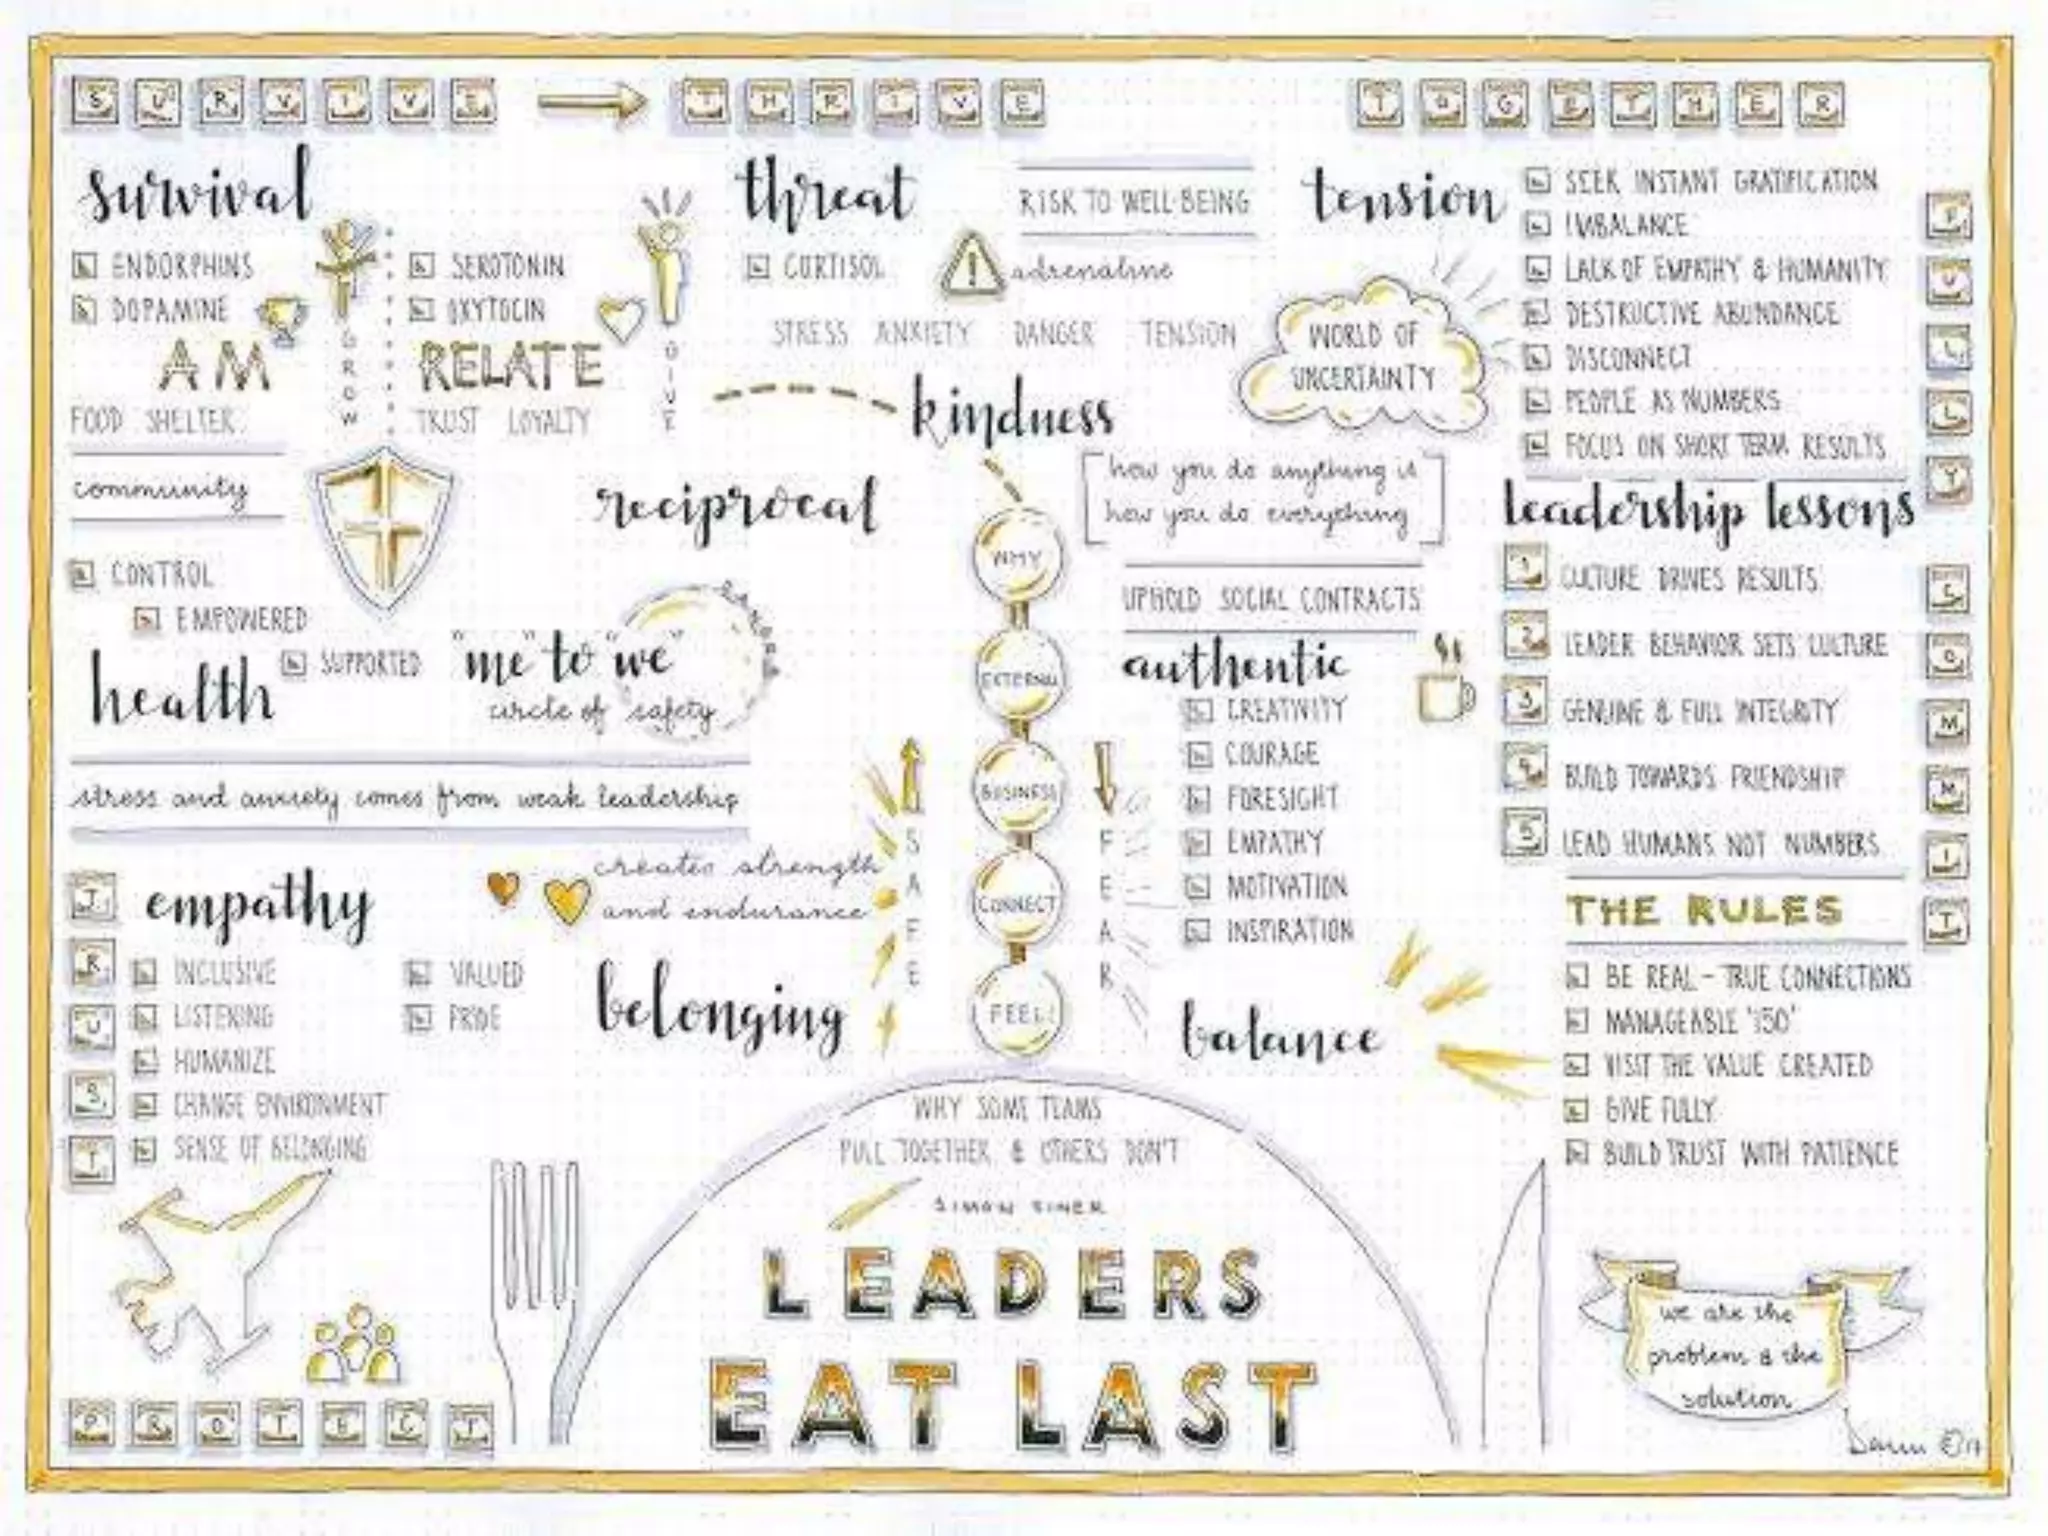 SURVIVE
THRIVE
TOGETHER
survival
ENDORPHINS
DOPAMINE
AM
FOOD SHELTER
GROW
SEROTONIN
OXYTOCIN
RELATE
TRUST LOYALTY
GIVE
community
CONTROL
EMPOWERED
SUPPORTED
health
threat
RISK TO WELL-BEING
CORTISOL
adrenaline
STRESS ANXIETY DANGER TENSION
kindness
reciprocal
how you do anything is
how you do everything
UPHOLD SOCIAL CONTRACTS
tension
WORLD OF
UNCERTAINTY
SEEK INSTANT GRATIFICATION
IMBALANCE
LACK OF EMPATHY & HUMANITY
DESTRUCTIVE ABUNDANCE
DISCONNECT
PEOPLE AS NUMBERS
FOCUS ON SHORT TERM RESULTS
FULLY
COMMIT
"me" to "we"
circle of safety
DANGER
stress and anxiety comes from weak leadership
WHY
EXTERNAL
BUSINESS
CONNECT
FEEL
SAFE
FEAR
authentic
CREATIVITY
COURAGE
FORESIGHT
EMPATHY
MOTIVATION
INSPIRATION
balance
leadership lessons
1 CULTURE DRIVES RESULTS
2 LEADER BEHAVIOR SETS CULTURE
3 GENUINE & FULL INTEGRITY
4 BUILD TOWARDS FRIENDSHIP
5 LEAD HUMANS NOT NUMBERS
THE RULES
BE REAL - TRUE CONNECTIONS
MANAGEABLE '150'
VISIT THE VALUE CREATED
GIVE FULLY
BUILD TRUST WITH PATIENCE
TRUST
empathy
INCLUSIVE
LISTENING
HUMANIZE
CHANGE ENVIRONMENT
SENSE OF BELONGING
VALUED
PRIDE
creates strength
and endurance
belonging
PROTECT
WHY SOME TEAMS
PULL TOGETHER & OTHERS DON'T
SIMON SINEK
LEADERS
EAT LAST
we are the
problem & the
solution